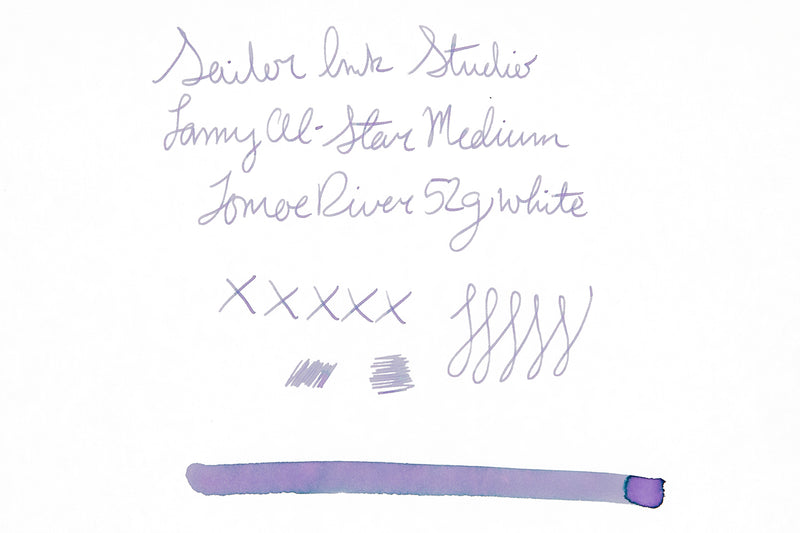 Sailor Ink Studio
Lamy Al-Star Medium
Tomoe River 52g white
XXXXX